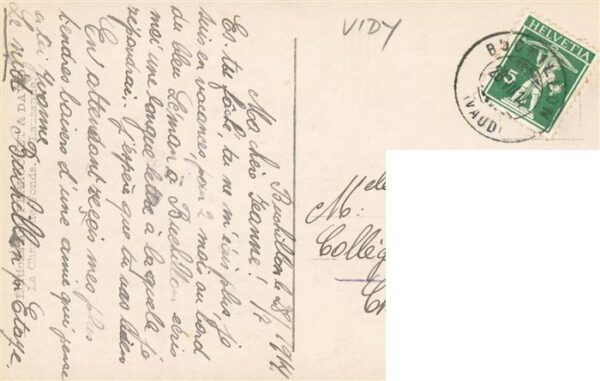 VIDY
HELVETIA
5
(VAUD)
Buchillon le 28/7 1914
Ma chère Jeanne!
Es-tu fâchée, tu ne m'écris plus, je
suis en vacances pour 2 mois au bord
du bleu Léman à Buchillon écris
moi une longue lettre à laquelle je
répondrai. J'espère que tu vas bien
En attendant reçois mes plus
tendres baisers d'une amie qui pense
à toi Yvonne
Le Buchillon p. Etoy.
Mlle
M.
Collèg